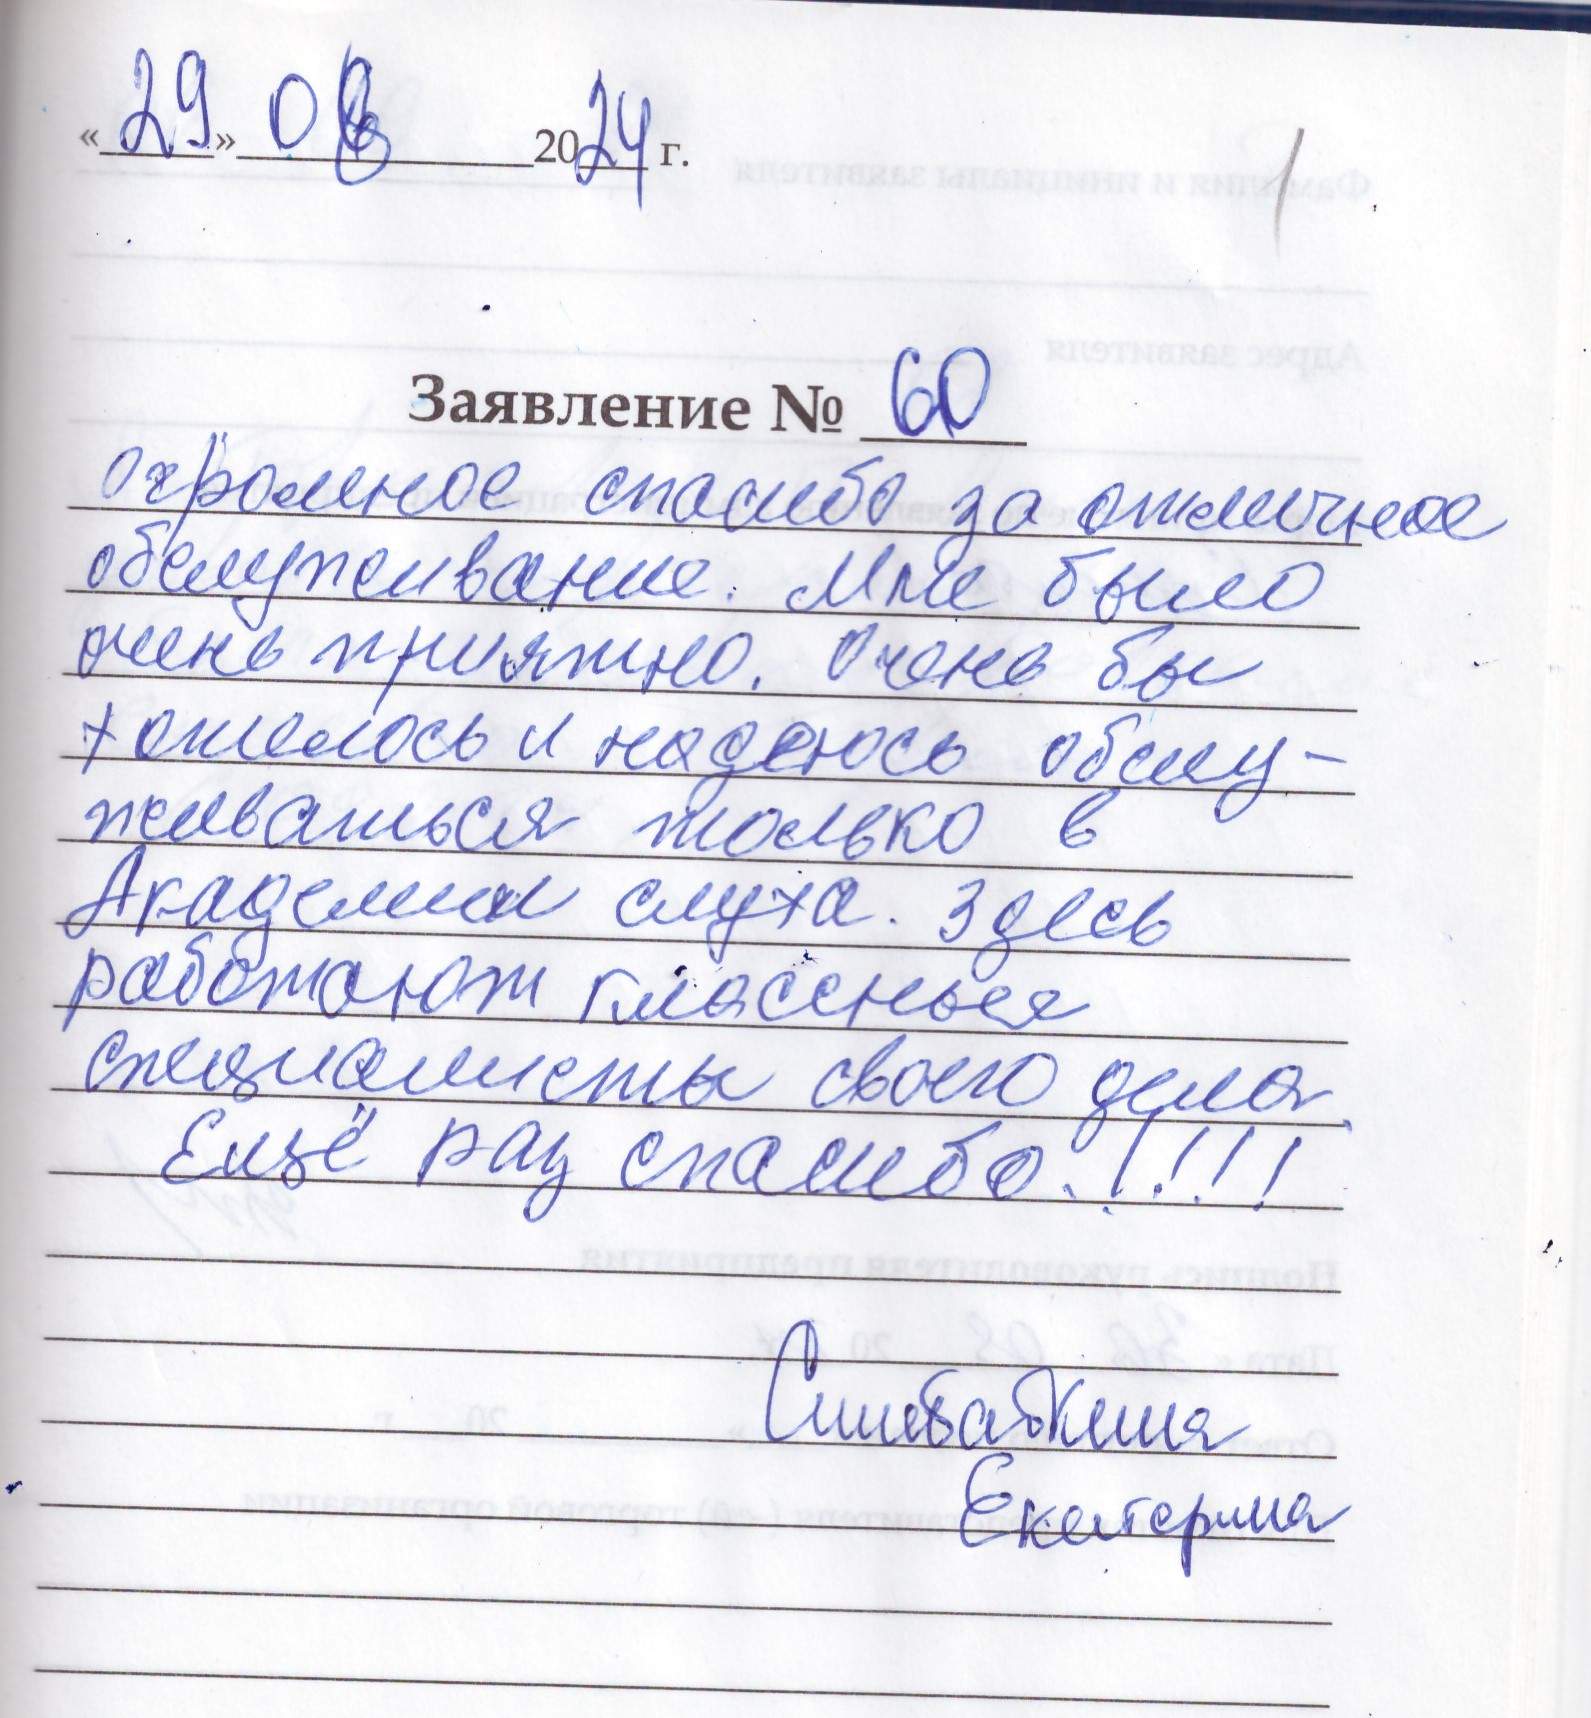 «29» 08 2024 г.
Заявление № 60
огромное спасибо за отличное
обслуживание. Мне было
очень приятно. Очень бы
хотелось и надеюсь обслу-
живаться только в
Академии слуха. Здесь
работают классные
специалисты своего дела.
Ещё раз спасибо.!!!!
Екатерина